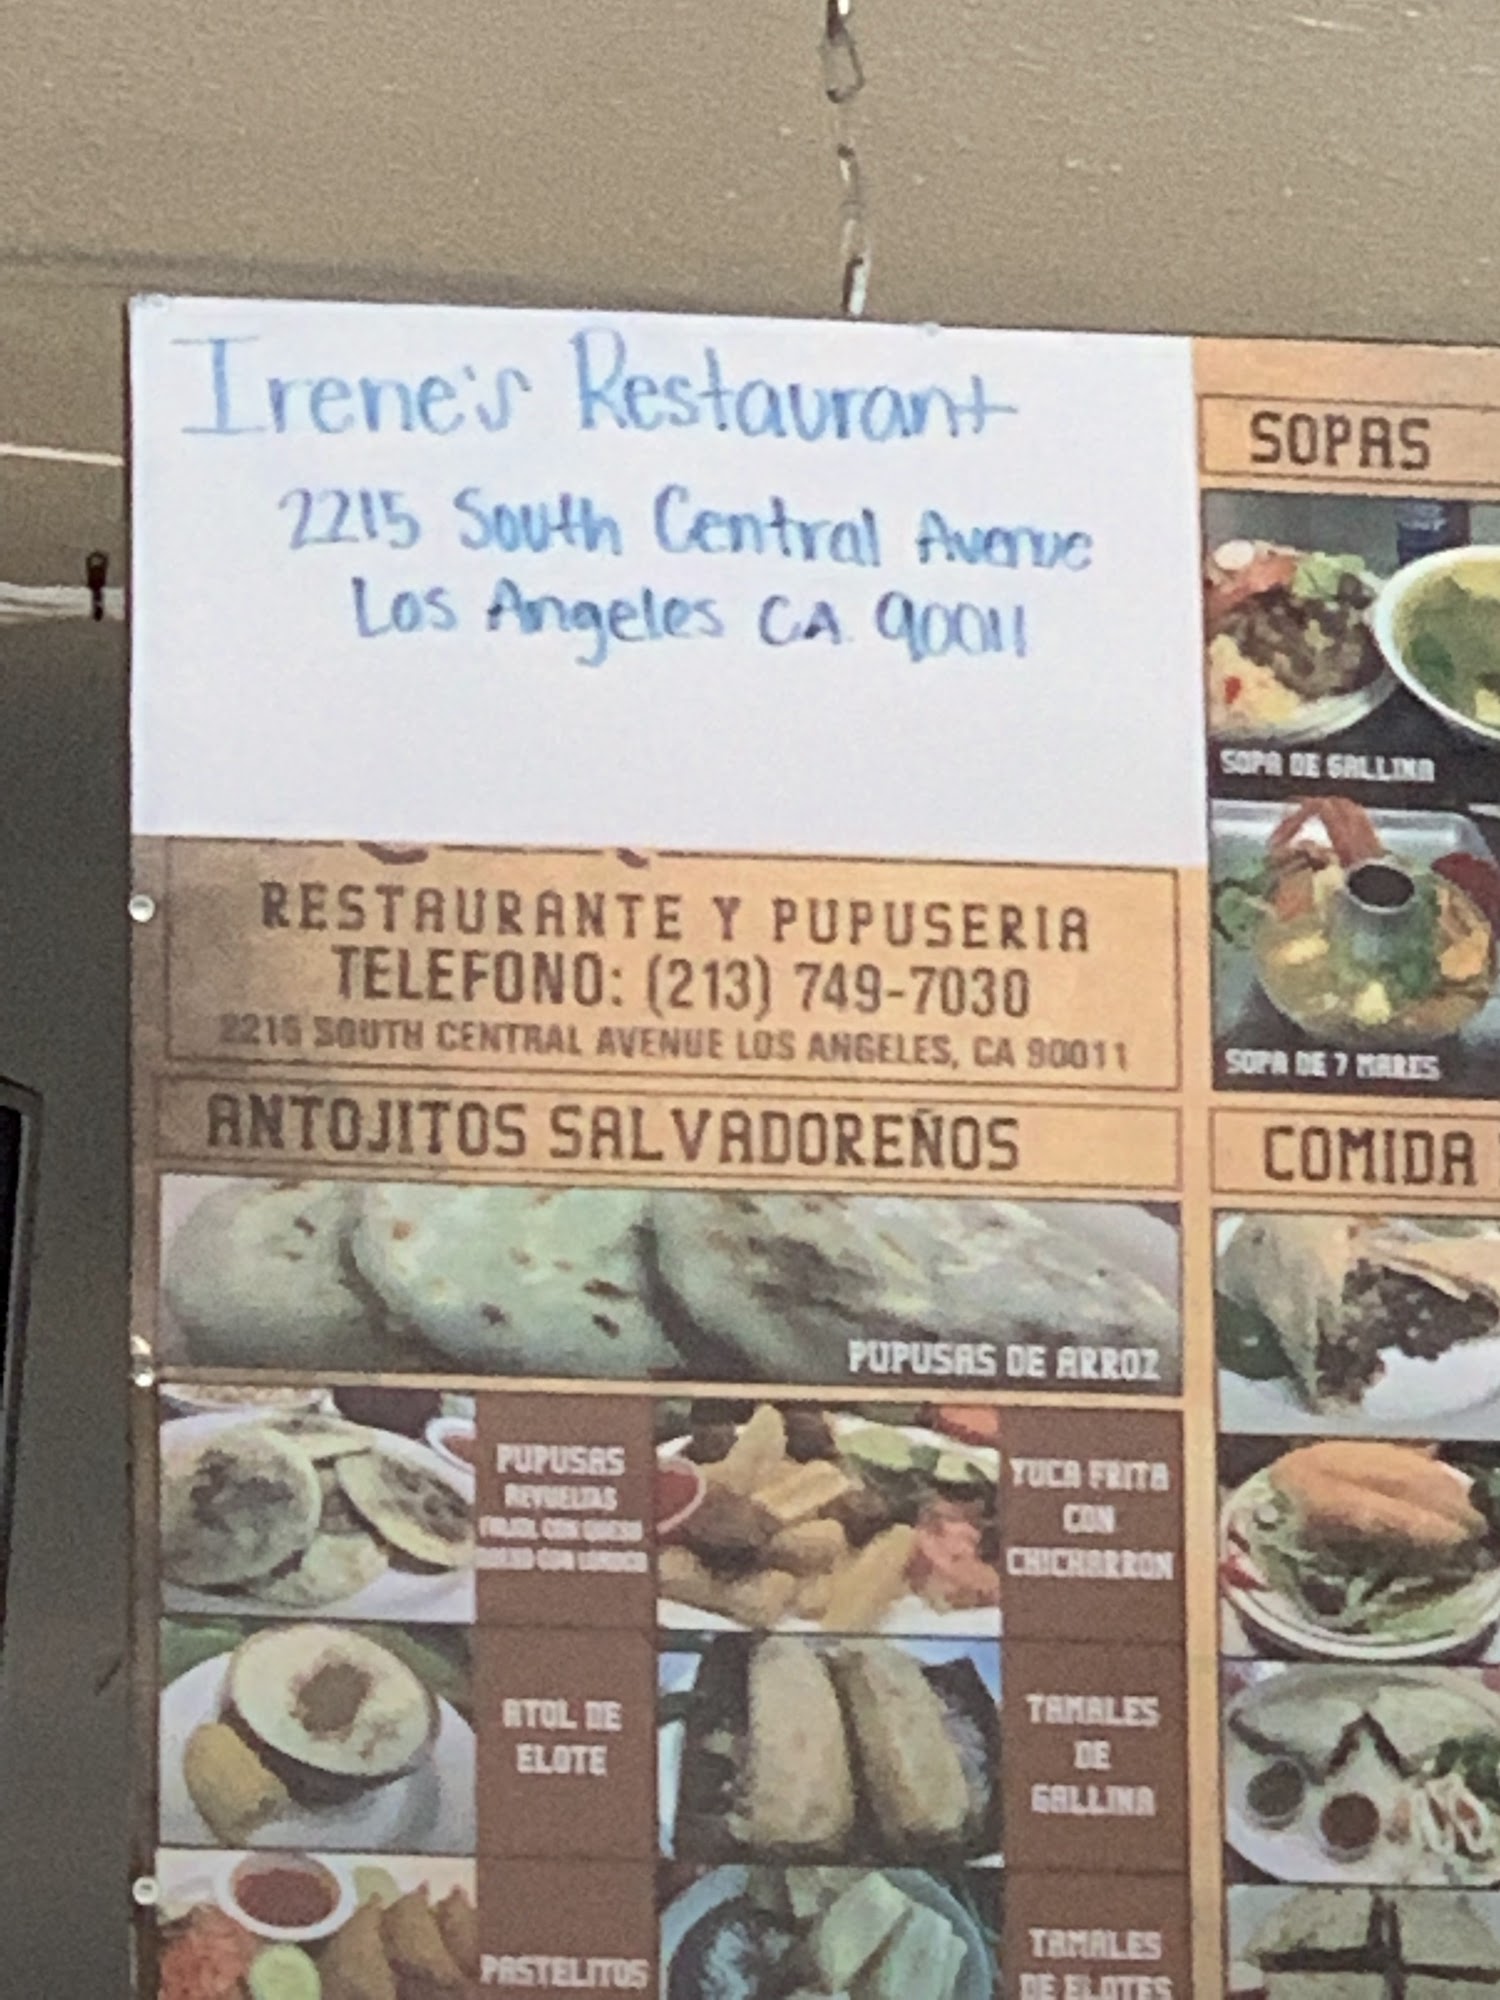 Irene's Restaurant
2215 South Central Avenue
Los Angeles CA 90011
RESTAURANTE Y PUPUSERIA
TELEFONO: (213) 749-7030
2215 SOUTH CENTRAL AVENUE LOS ANGELES, CA 90011
ANTOJITOS SALVADOREÑOS
PUPUSAS DE ARROZ
PUPUSAS
REVUELTAS
FRIJOL CON QUESO
QUESO CON LOROCO
YUCA FRITA
CON
CHICHARRON
ATOL DE
ELOTE
TAMALES
DE
GALLINA
PASTELITOS
TAMALES
DE ELOTES
SOPAS
SOPA DE GALLINA
SOPA DE 7 MARES
COMIDA